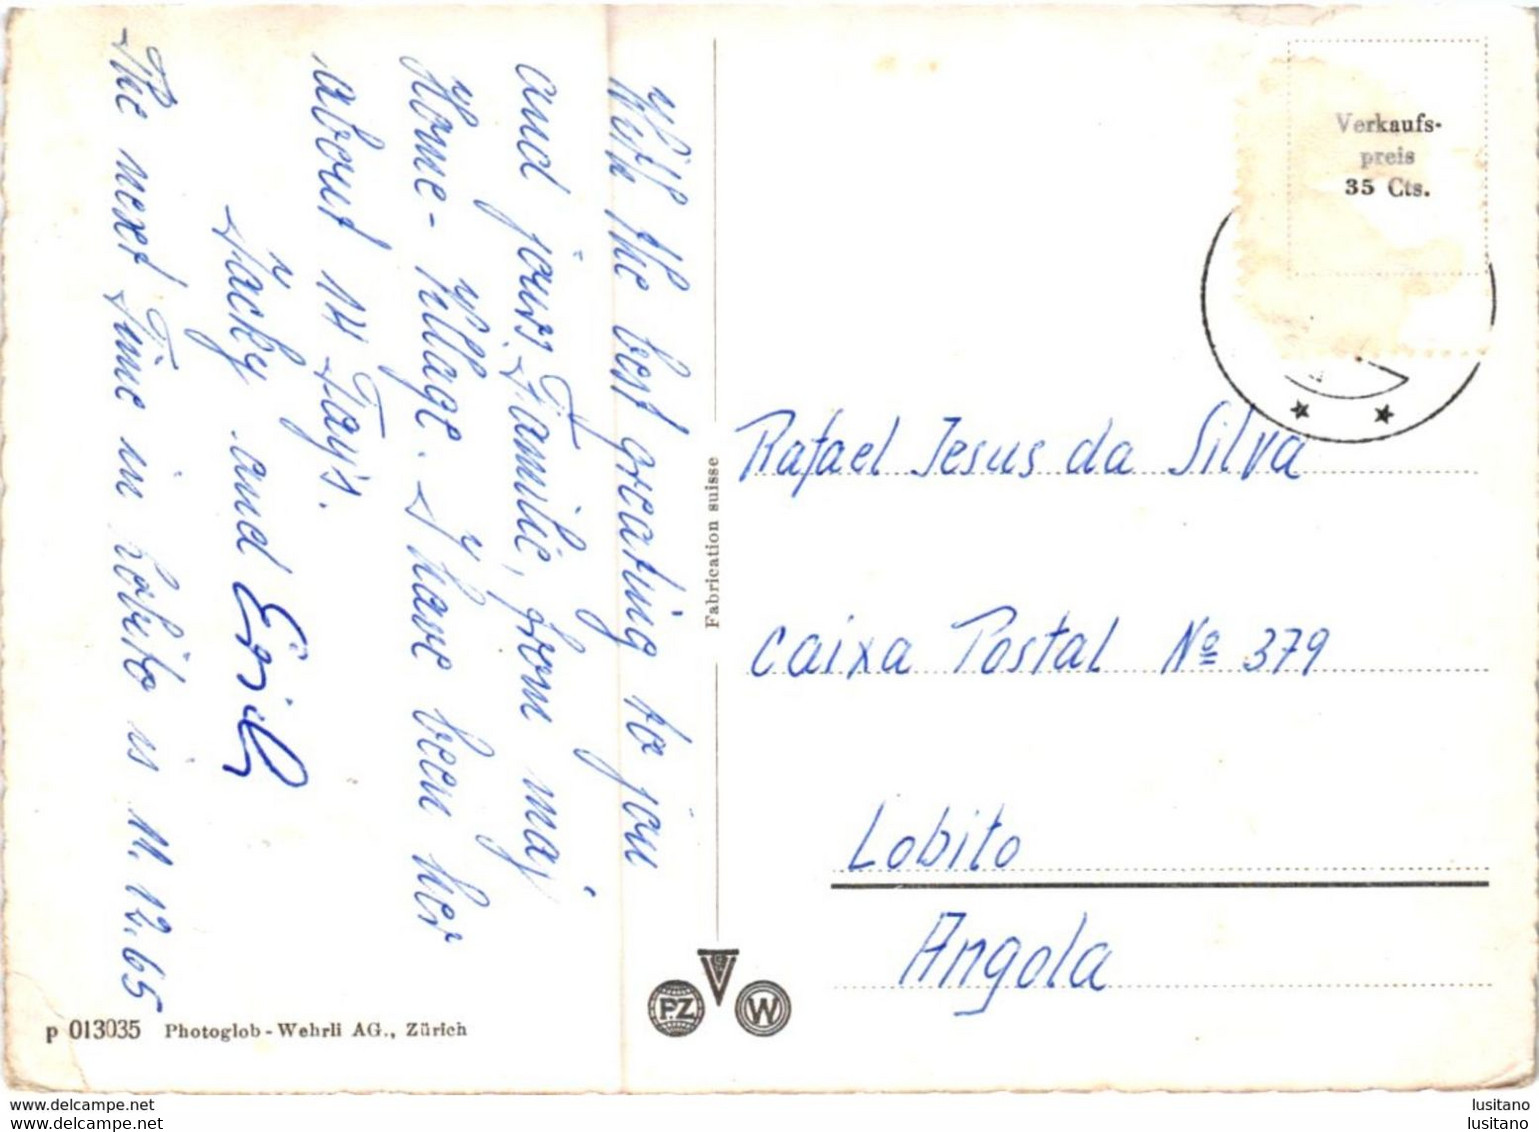 With the best greating to jou
and jours Familie, from maj
Home-Village. I have been her
about 14 Tay's.
Jacky and Erich
The next Time in Lobito is 11.12.65
Verkaufs-
preis
35 Cts.
Rafael Jesus da Silva
Caixa Postal Nº 379
Lobito
Angola
Fabrication suisse
PZ
W
p 013035 Photoglob-Wehrli AG., Zürich
www.delcampe.net
www.delcampe.net
lusitano
lusitano